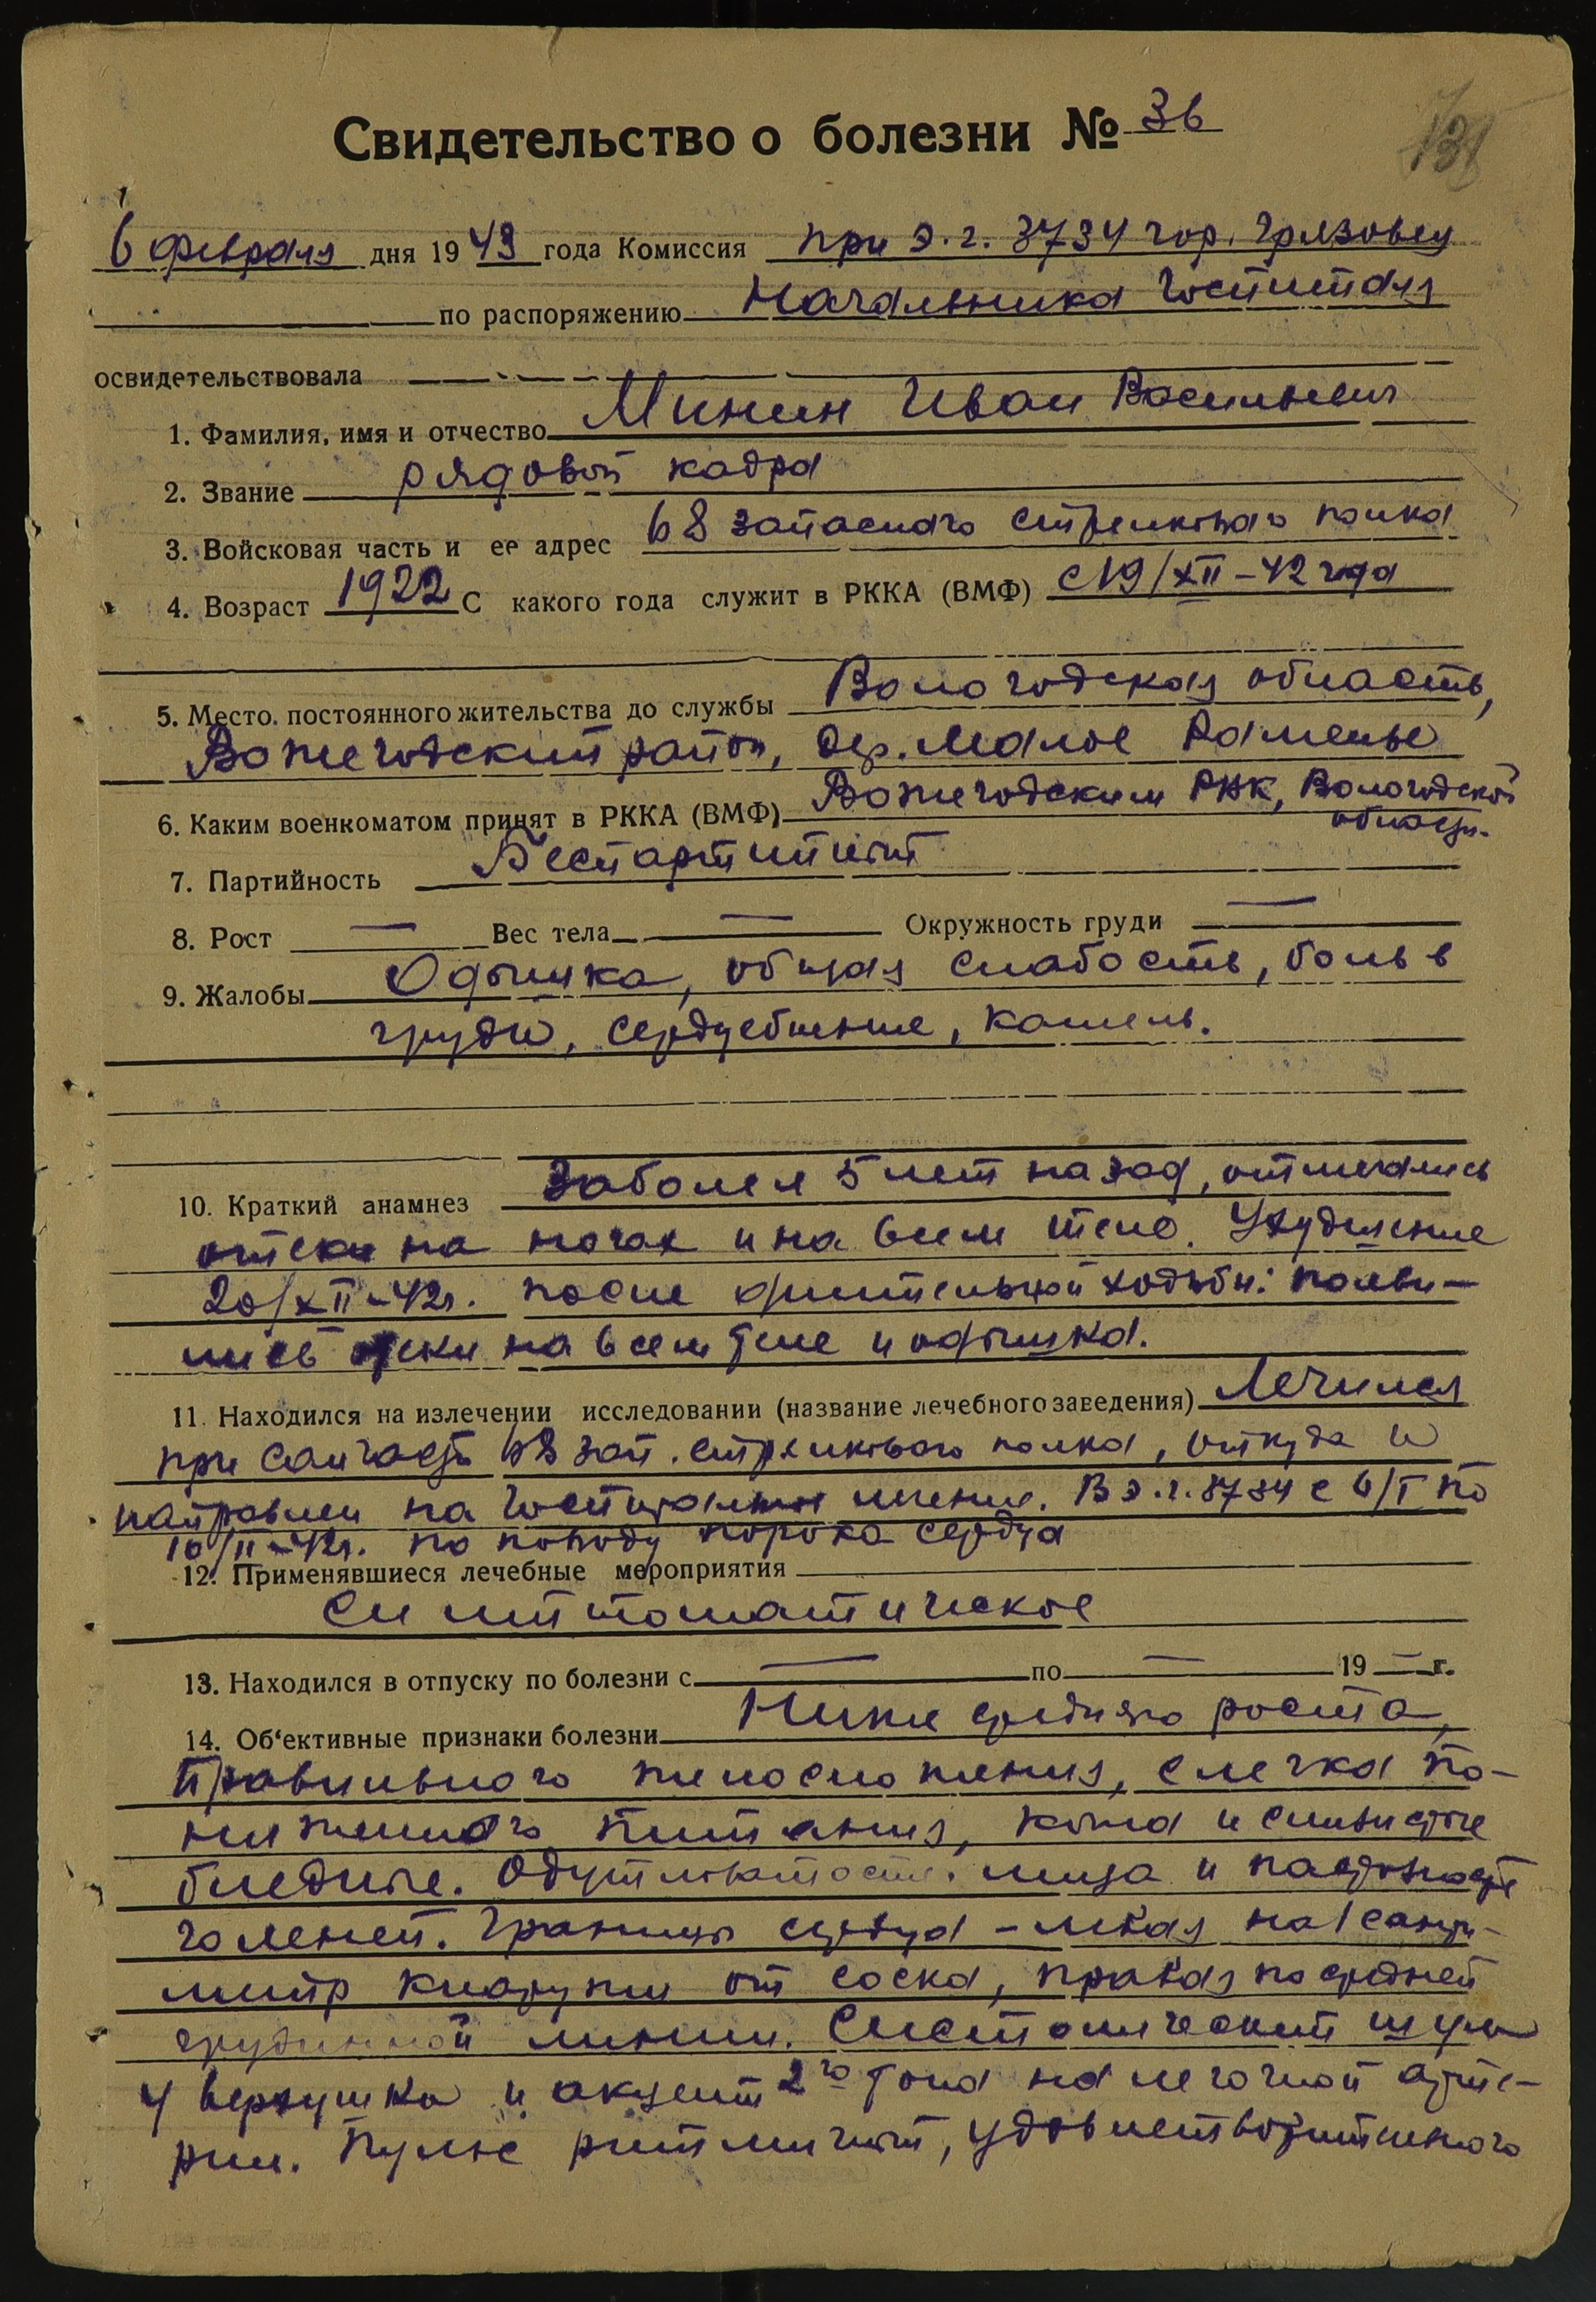 Свидетельство о болезни № 36
138
6 февраля дня 1943 года Комиссия при э.г. 3734 гор. Грязовец
по распоряжению Начальника Госпиталя
освидетельствовала
1. Фамилия, имя и отчество Минин Иван Васильевич
2. Звание рядовой кадра
3. Войсковая часть и ее адрес 68 запасного стрелкового полка
4. Возраст 1922 С какого года служит в РККА (ВМФ) с 19/XII-42 года
5. Место постоянного жительства до службы Вологодская область,
Вожегодский район, дер. Малое Раменье
6. Каким военкоматом принят в РККА (ВМФ) Вожегодским РВК, Вологодской
области.
7. Партийность Беспартийный
8. Рост — Вес тела — Окружность груди —
9. Жалобы Одышка, общая слабость, боль в
груди, сердцебиение, кашель.
10. Краткий анамнез Заболел 5 лет назад, отмечались
отеки на ногах и на всем теле. Ухудшение
20/XII-42г. после длительной ходьбы: появи-
лись отеки на всем теле и одышка.
11. Находился на излечении исследовании (название лечебного заведения) Лечился
при санчасти 68 зап. стрелкового полка, откуда и
направлен на госпитальное лечение. В э.г. 3734 с 6/I по
10/II-42г. по поводу порока сердца
12. Применявшиеся лечебные мероприятия
Симптоматическое
13. Находился в отпуску по болезни с — по — 19 — г.
14. Об'ективные признаки болезни Ниже среднего роста,
правильного телосложения, слегка по-
ниженного питания, кожа и слизистые
бледные. Одутловатость лица и пастозность
голеней. Границы сердца - левая на 1 санти-
метр кнаружи от соска, правая по средней
грудинной линии. Систолический шум
у верхушки и акцент 2го тона на легочной арте-
рии. Пульс ритмичный, удовлетворительного